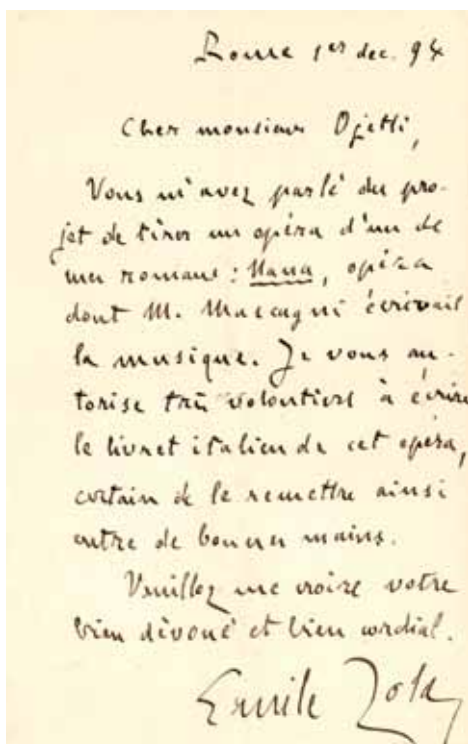 Rome 1er dec. 94
Cher monsieur Ojetti,
Vous m'avez parlé du pro-
jet de tirer un opéra d'un de
mes romans : Nana, opéra
dont M. Mascagni écrirait
la musique. Je vous au-
torise très volontiers à écrire
le livret italien de cet opéra,
certain de le remettre ainsi
entre de bonnes mains.
Veuillez me croire votre
bien dévoué et bien cordial.
Emile Zola